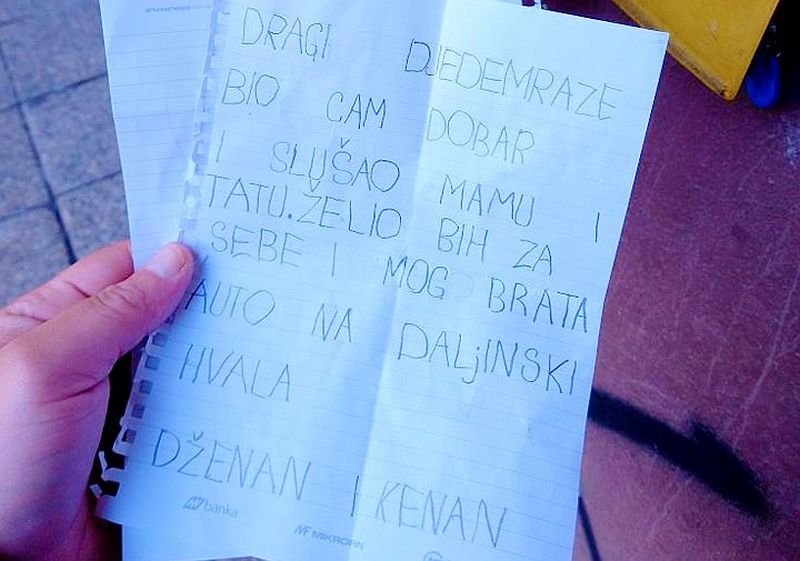 DRAGI DJEDEMRAZE
BIO CAM DOBAR
I SLUŠAO MAMU I
TATU.ŽELIO BIH ZA
SEBE I MOG BRATA
AUTO NA DALjINSKI
HVALA
DŽENAN I KENAN
banka
MIKROFIN